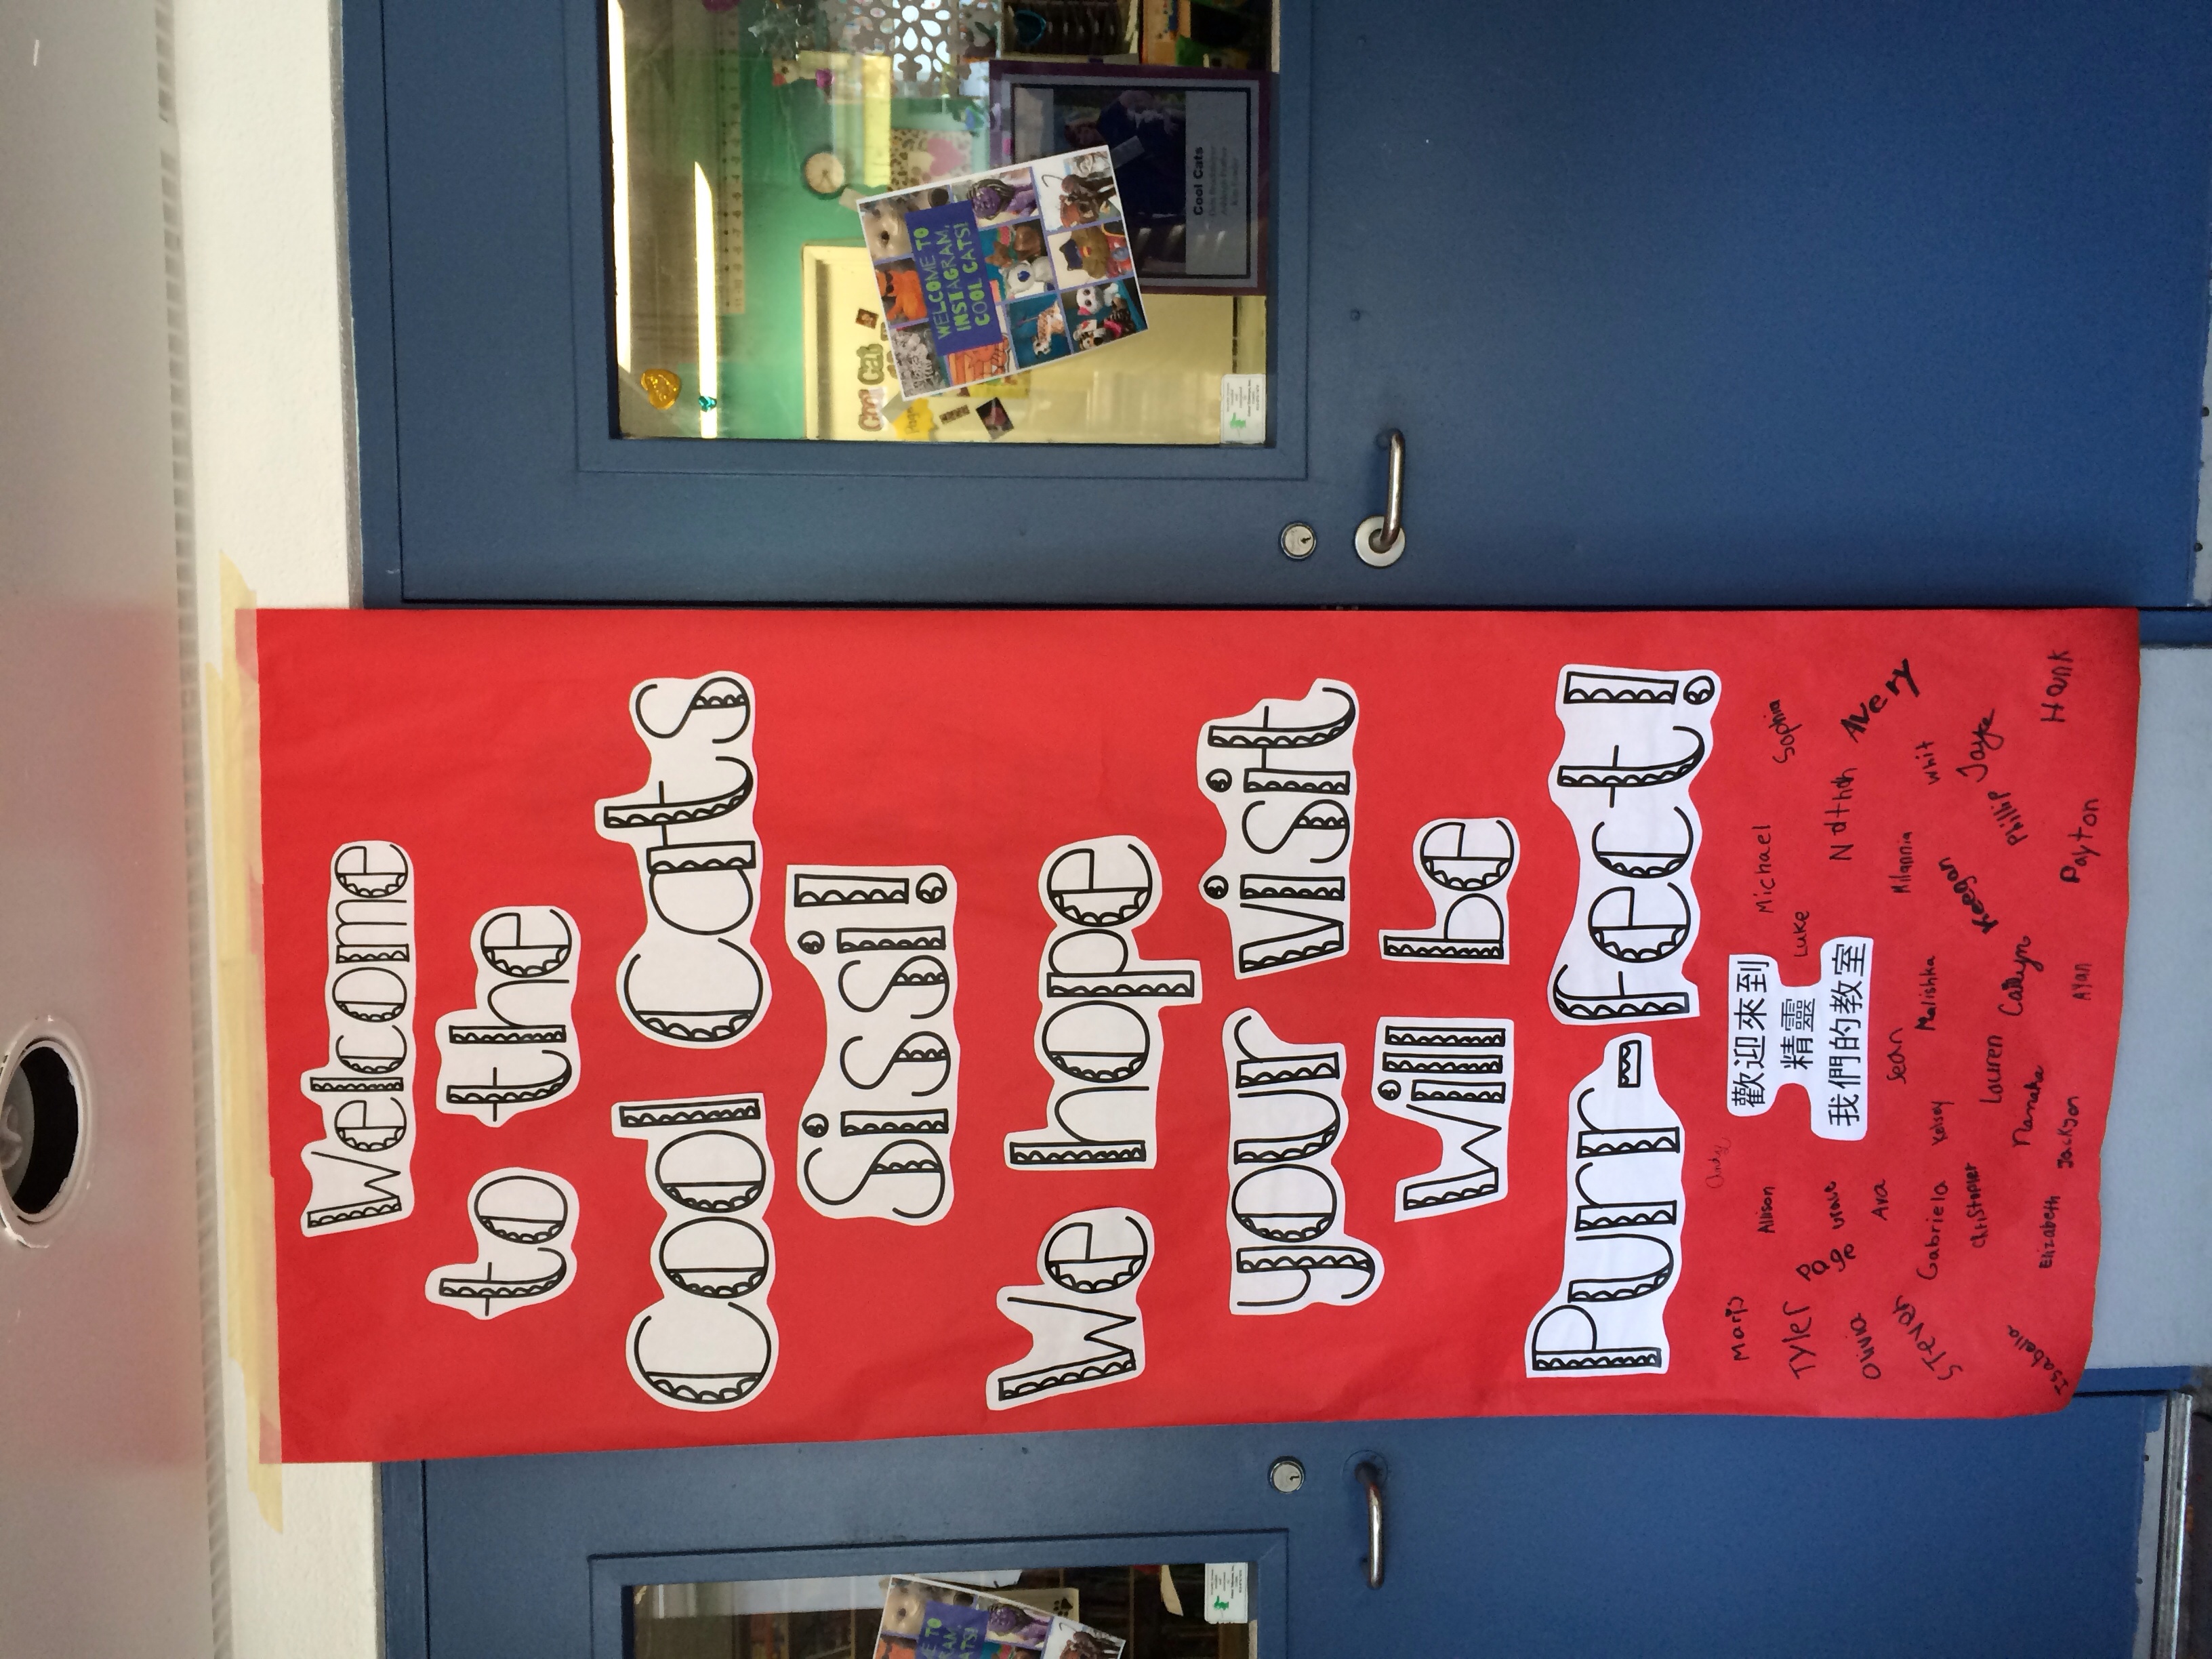 Welcome
to the
Cool Cats
Sissi!
We hope
your visit
will be
Purr-fect!
歡迎來到
精靈
我們的教室
Andy
Michael
Sophia
Maris
Allison
Luke
Tyler
Page
Grant
Nathan
Avery
Olivia
Ava
Sean
Milannia
Steven
Gabriela
Kelsey
Malishka
Whit
Christopher
Keegan
Jake
Lauren
Caitlyn
Phillip
Isabella
Elizabeth
Jackson
Ayan
Payton
Hank
WELCOME TO
INSTAGRAM,
COOL CATS!
Cool Cats
Cool Cat